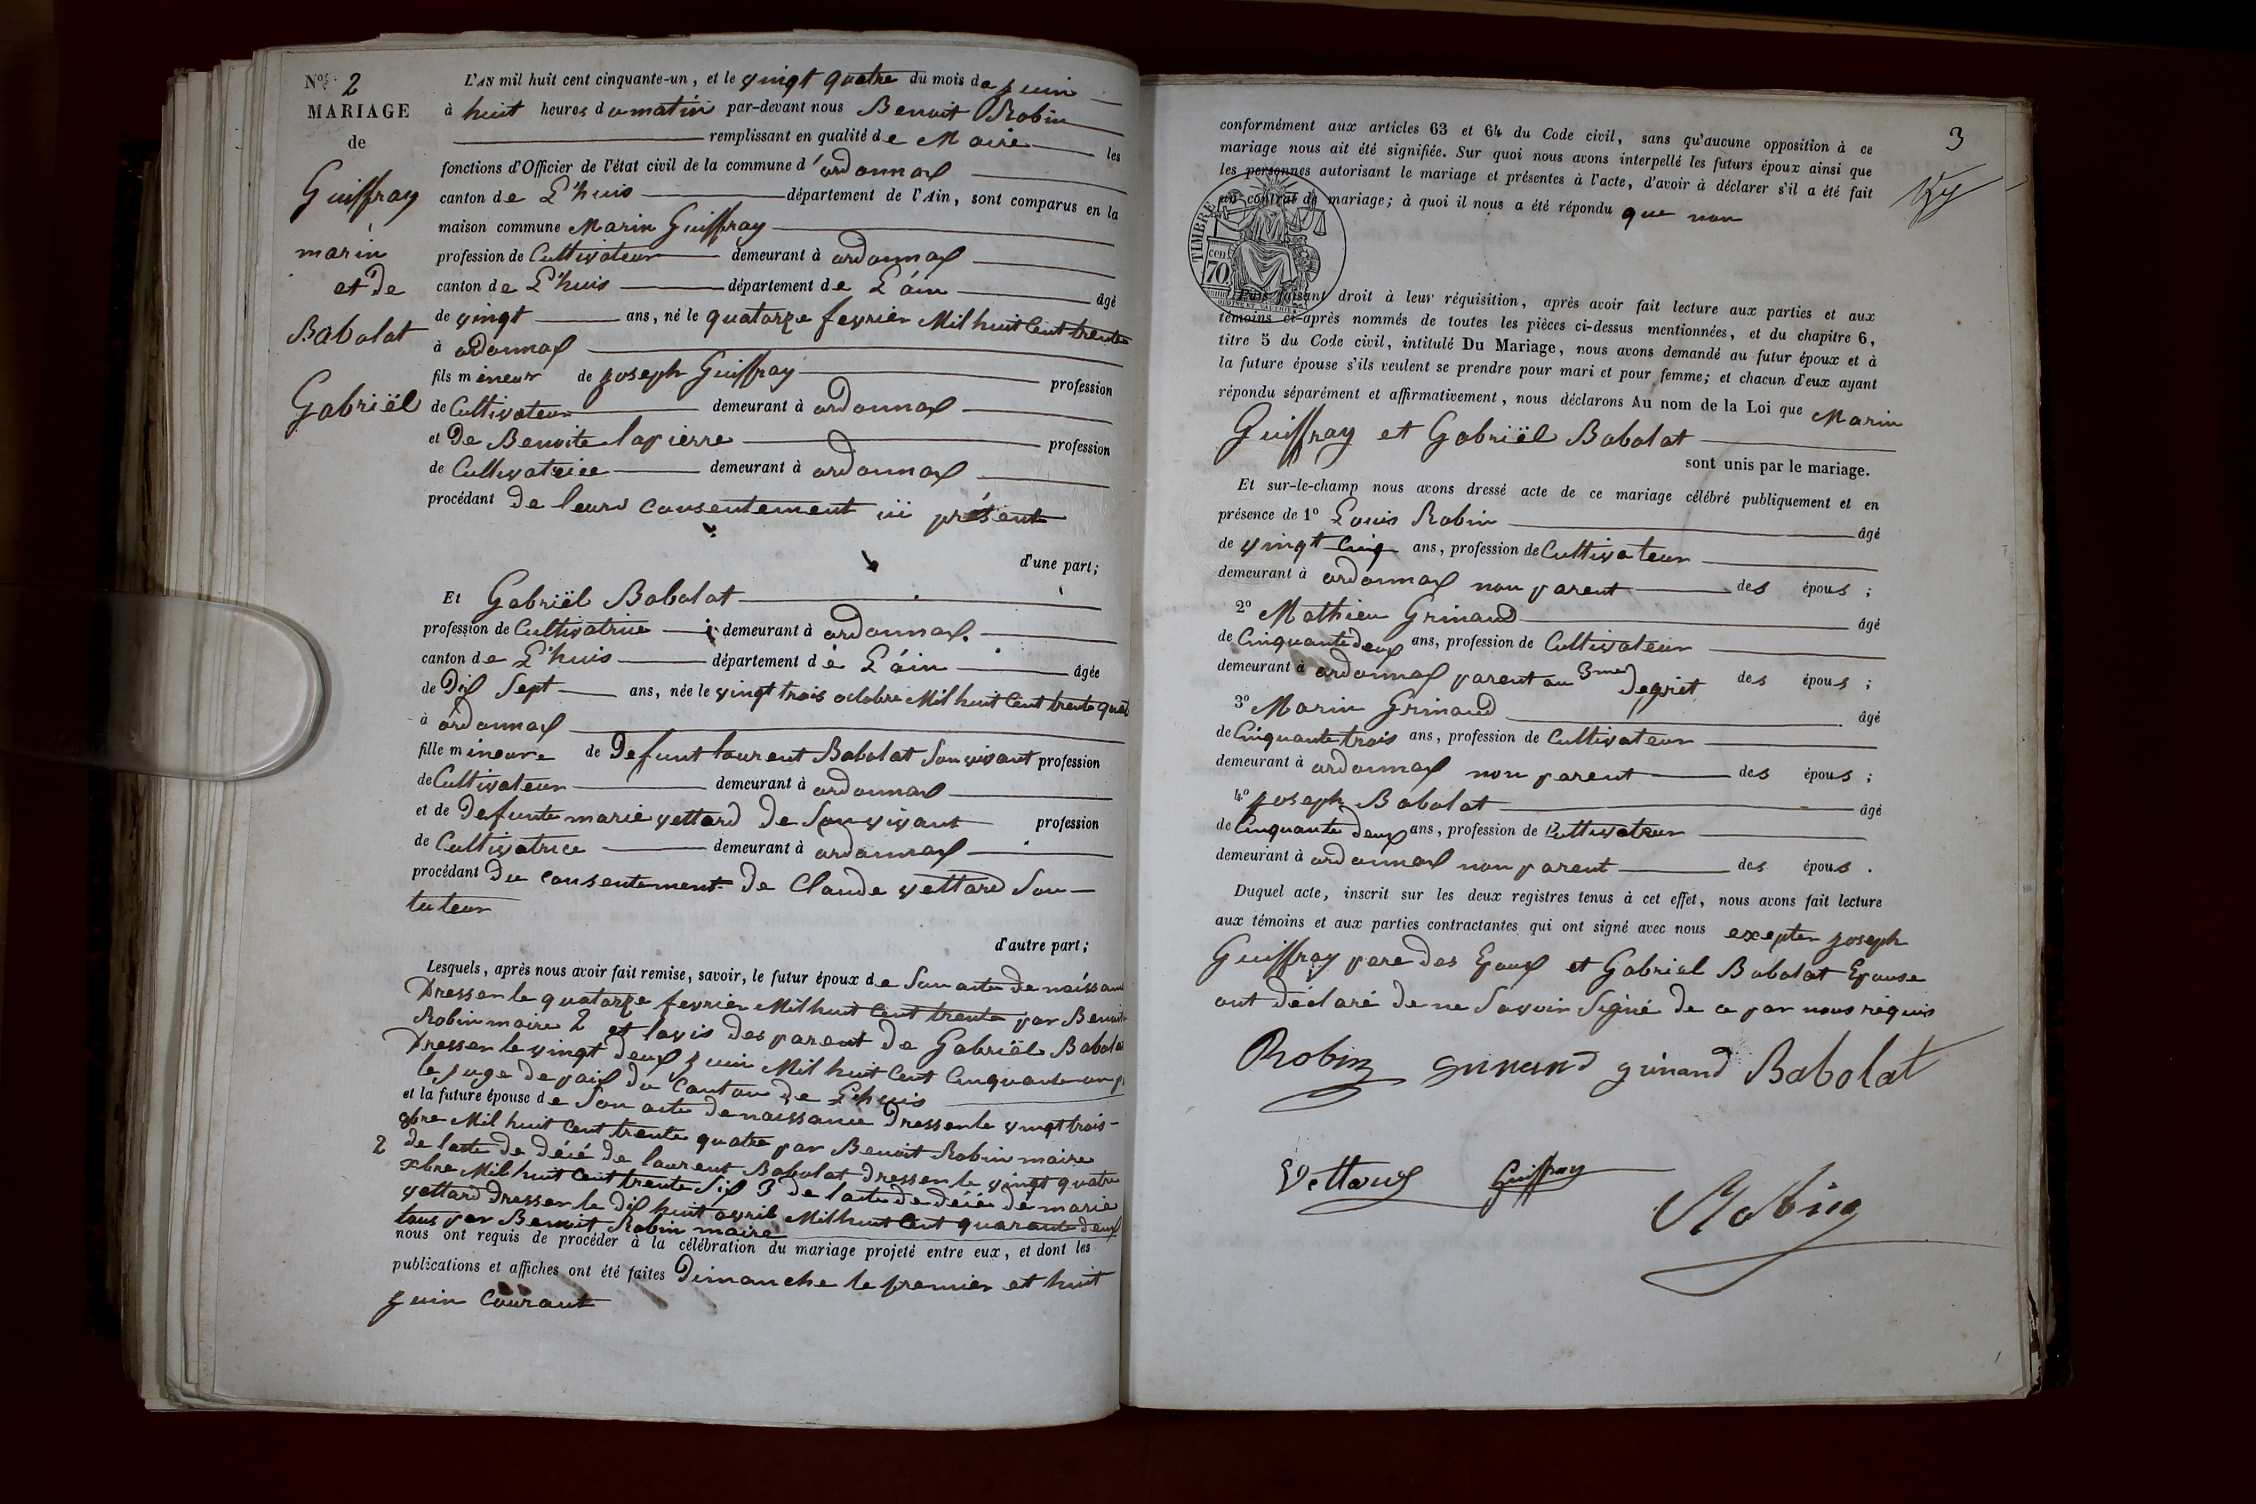 Nos 2
MARIAGE
de
Guiffray
marin
et de
Babolat
Gabriël
L'AN mil huit cent cinquante-un, et le vingt quatre du mois de juin
à huit heures du matin par-devant nous Benoit Robin
remplissant en qualité de Maire les
fonctions d'Officier de l'état civil de la commune d'ordonnax
canton de L'huis département de l'Ain, sont comparus en la
maison commune Marin Guiffray
profession de Cultivateur demeurant à ordonnax
canton de L'huis département de L'áin âgé
de vingt ans, né le quatorze fevrier Mil huit Cent trente
à ordonnax
fils mineur de joseph Guiffray profession
de Cultivateur demeurant à ordonnax
et De Benoite lapierre profession
de Cultivatrice demeurant à ordonnax
procédant de leurs consentement ici présent
d'une part;
Et Gabriël Babolat
profession de Cultivatrice demeurant à ordonnax
canton de L'huis département de L'áin âgée
de Dix Sept ans, née le vingt trois octobre Mil huit Cent trente quat
à ordonnax
fille mineure de Defunt laurent Babolat Son vivant profession
de Cultivateur demeurant à ordonnax
et de Defunte marie vettard De Son vivant profession
de Cultivatrice demeurant à ordonnax
procédant Du consentement De Claude vettard Son
tuteur
d'autre part;
Lesquels, après nous avoir fait remise, savoir, le futur époux de Son acte De naissan
Dresser le quatorze fevrier Mil huit Cent trente par Benoit
Robin maire 2 et lavis des parent de Gabriël Babola
Dresser le vingt deux juin Mil huit Cent Cinquante un p
le juge de paix du Canton de L'huis
et la future épouse de Son acte De naissance Dresser le vingt trois
8bre Mil huit Cent trente quatre par Benoit Robin maire
2 de l'acte de décé de laurent Babolat Dresser le vingt quatre
xbre Mil huit Cent trente Six 3 de l'acte de décé de marie
vettard Dresser le Dix huit avril Mil huit Cent quarante deux
tous par Benoit Robin maire
nous ont requis de procéder à la célébration du mariage projeté entre eux, et dont les
publications et affiches ont été faites Dimanche le premier et huit
juin Courant
3
conformément aux articles 63 et 64 du Code civil, sans qu'aucune opposition à ce
mariage nous ait été signifiée. Sur quoi nous avons interpellé les futurs époux ainsi que
les personnes autorisant le mariage et présentes à l'acte, d'avoir à déclarer s'il a été fait
un contrat de mariage; à quoi il nous a été répondu que non
TIMBRE
cen
70.
Puis faisant droit à leur réquisition, après avoir fait lecture aux parties et aux
témoins ci-après nommés de toutes les pièces ci-dessus mentionnées, et du chapitre 6,
titre 5 du Code civil, intitulé Du Mariage, nous avons demandé au futur époux et à
la future épouse s'ils veulent se prendre pour mari et pour femme; et chacun d'eux ayant
répondu séparément et affirmativement, nous déclarons Au nom de la Loi que Marin
Guiffray et Gabriël Babolat
sont unis par le mariage.
Et sur-le-champ nous avons dressé acte de ce mariage célébré publiquement et en
présence de 1º Louis Robin âgé
de vingt Cinq ans, profession de Cultivateur
demeurant à ordonnax non parent des épous ;
2º Mathieu Grinand âgé
de Cinquante deux ans, profession de Cultivateur
demeurant à ordonnax parent au 3me Degriet des épous ;
3º Marin Grinand âgé
de Cinquante trois ans, profession de Cultivateur
demeurant à ordonnax non parent des épous ;
4º joseph Babolat âgé
de Cinquante deux ans, profession de Cultivateur
demeurant à ordonnax non parent des épous .
Duquel acte, inscrit sur les deux registres tenus à cet effet, nous avons fait lecture
aux témoins et aux parties contractantes qui ont signé avec nous exepter joseph
Guiffray pere des Epoux et Gabriel Babolat Epouse
ont déclaré de ne Savoir Signé de ce par nous réquis
Robin grinand grinand Babolat
Vettard Guiffray
Robin